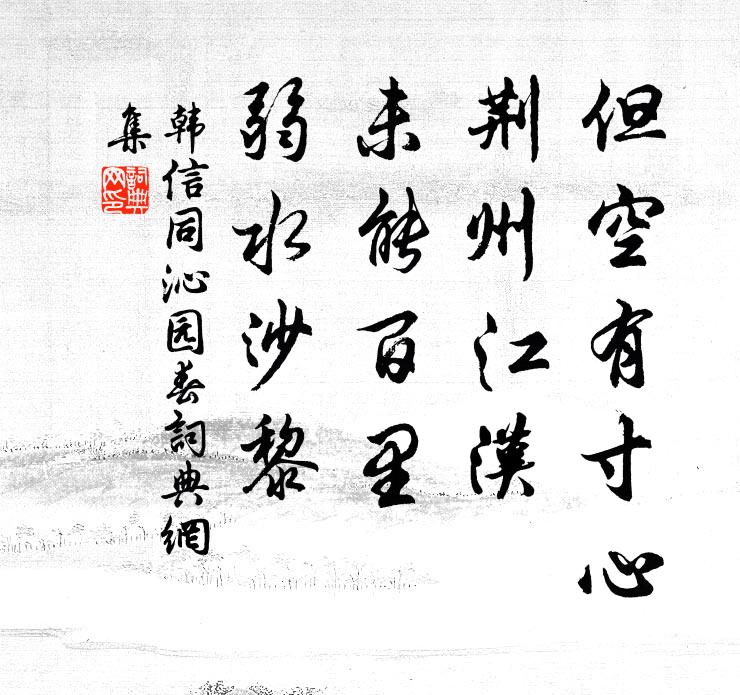 但空有寸心
荆州江汉
未能百里
弱水沙黎
韩信同沁园春詞典網
集
詞典
网印